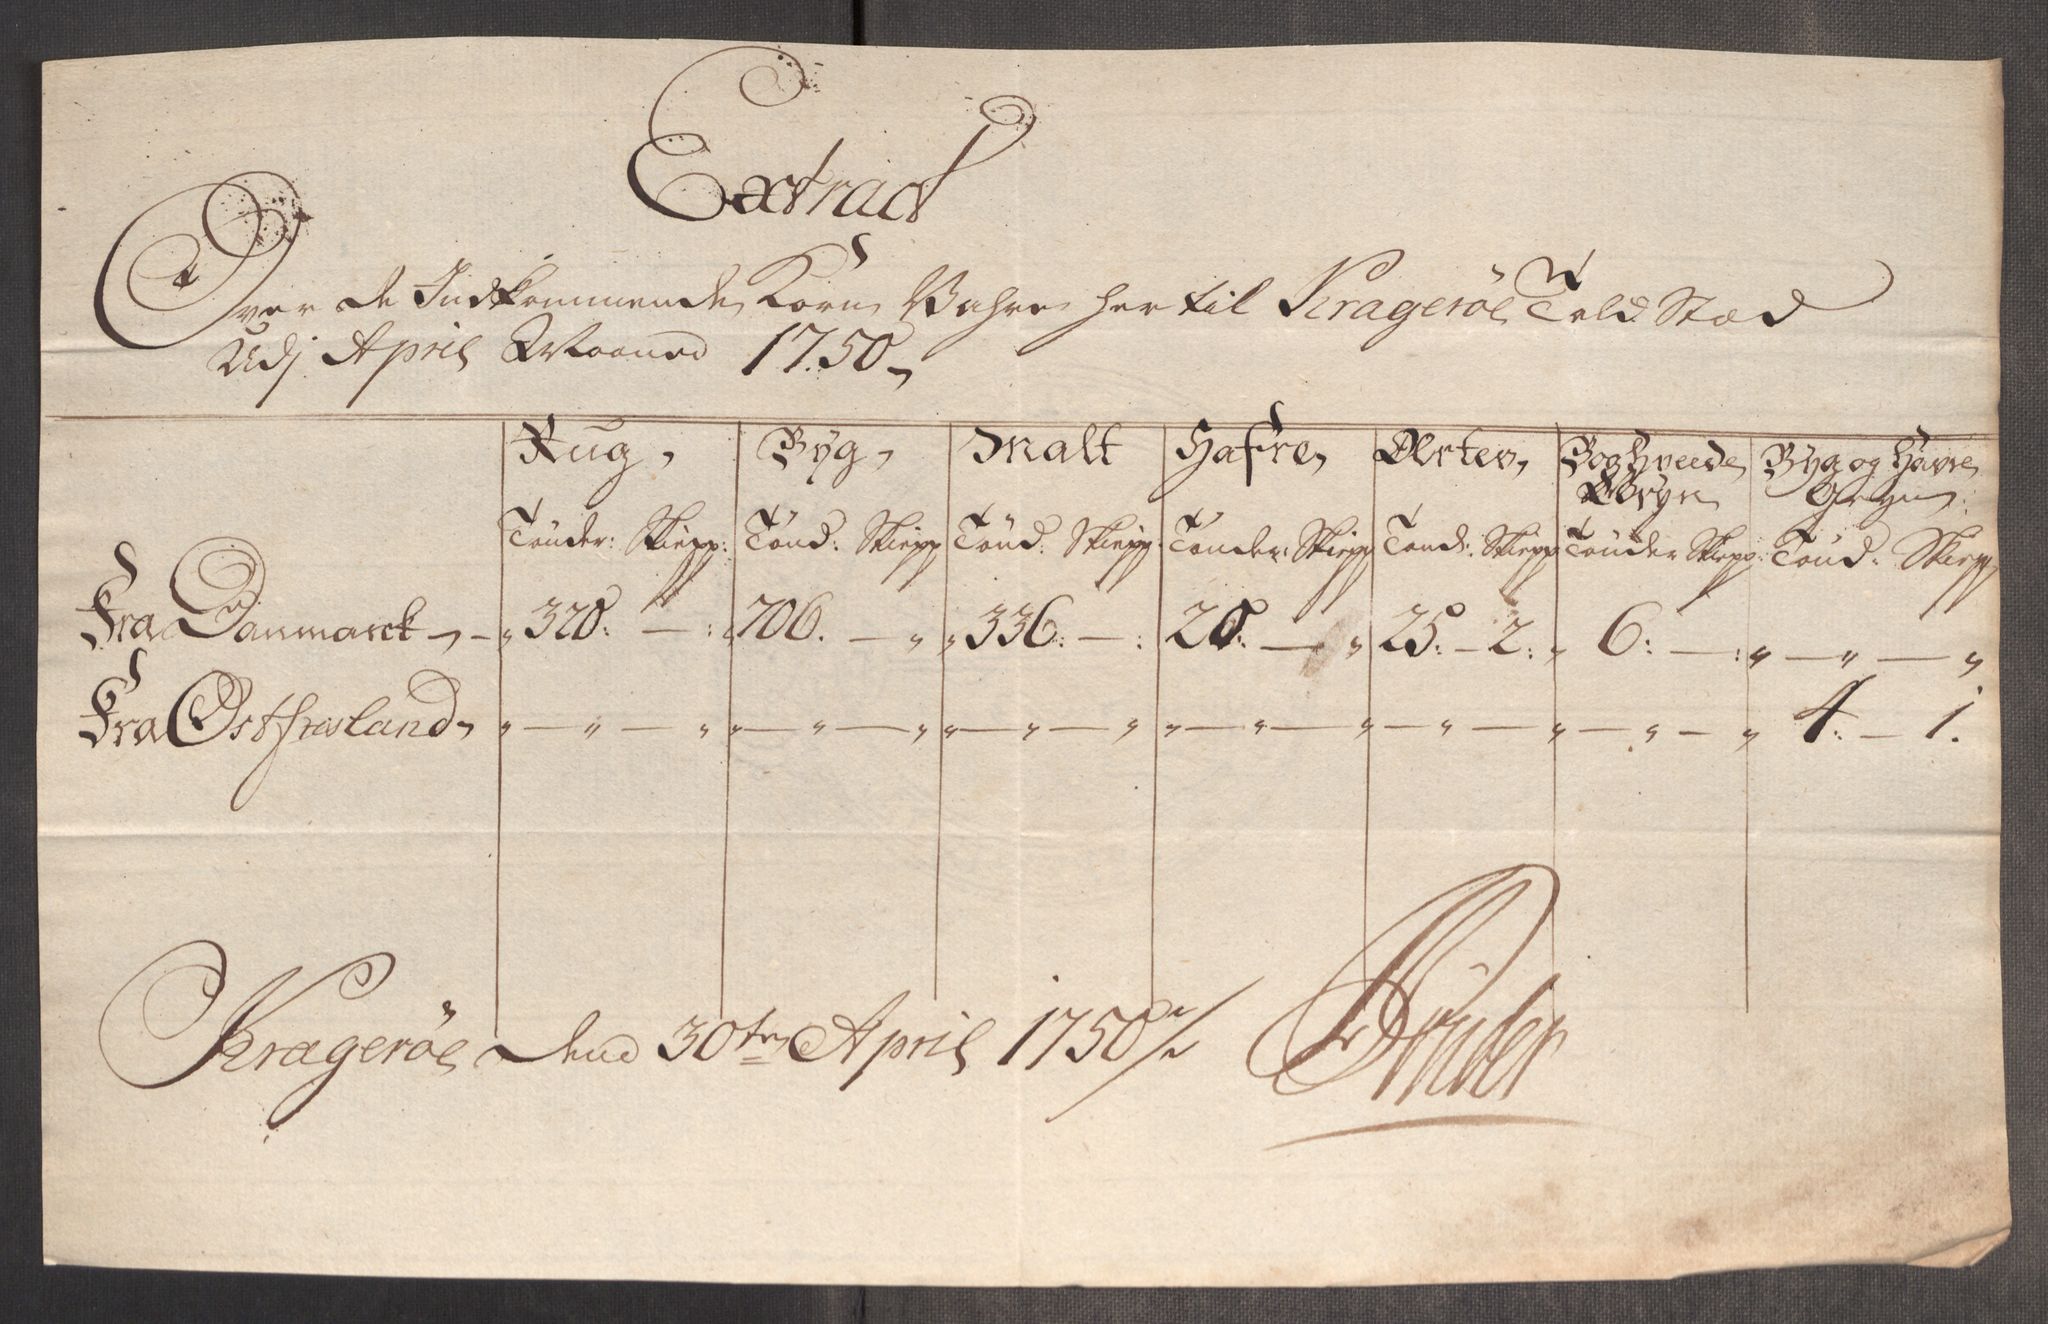 Extract
Over de Indkommende Korn Vahre her til Krageröe Told Stæd
Udj April Maaned 1750
Rug, Byg, Malt Hafre Ærter, Boghveede Byg og Havre
Gryn Gryn
Tönder: Skiepp: Tönd: Skiepp Tönd: Skiepp: Tönder: Skiepp Tönd: Skiepp Tönder Skiepp: Tönd: Skiepp
Fra Danmarck - „ 320: — : „ 706. — „ „ 336: — : 20: — „ 25: - 2: „ 6: — : „ — „ — „
Fra Ostfrisland, „ — „ — „ „ — „ — „ „ — „ — „ „ — „ — „ „ — „ — „ „ — „ — „ 4: — 1.
Krageröe Dend 30te April 1750